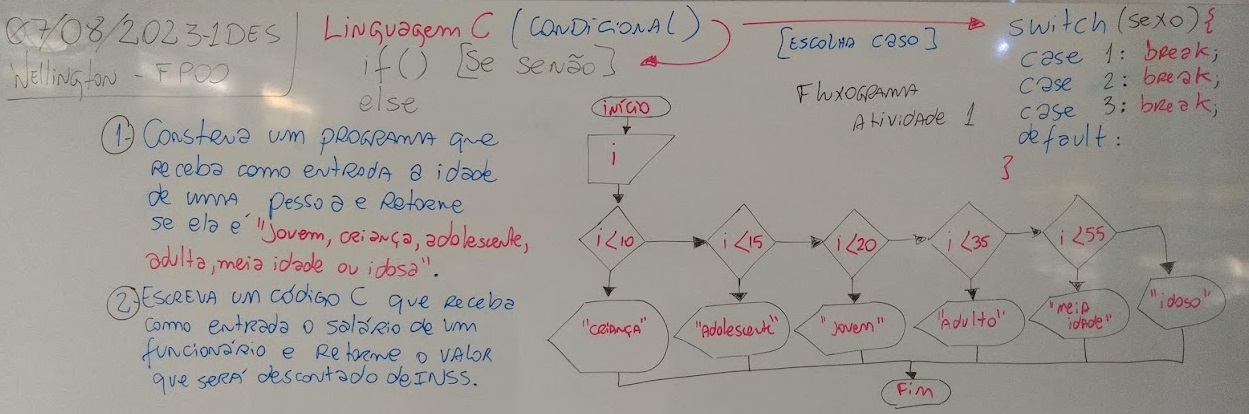 07/08/2023-1DES
Wellington - FPOO
Linguagem C (condicional)
if() [Se senão]
else
[ESCOLHA CASO]
switch(sexo){
case 1: break;
case 2: break;
case 3: break;
default:
}
Fluxograma
Atividade 1
1- Construa um programa que
receba como entrada a idade
de uma pessoa e retorne
se ela é "Jovem, criança, adolescente,
adulta, meia idade ou idosa".
2- Escreva um código C que receba
como entrada o salário de um
funcionário e retorne o valor
que será descontado de INSS.
INÍCIO
i
i<10
i<15
i<20
i<35
i<55
"criança"
"Adolescente"
"jovem"
"Adulto"
"meia
idade"
"idoso"
Fim